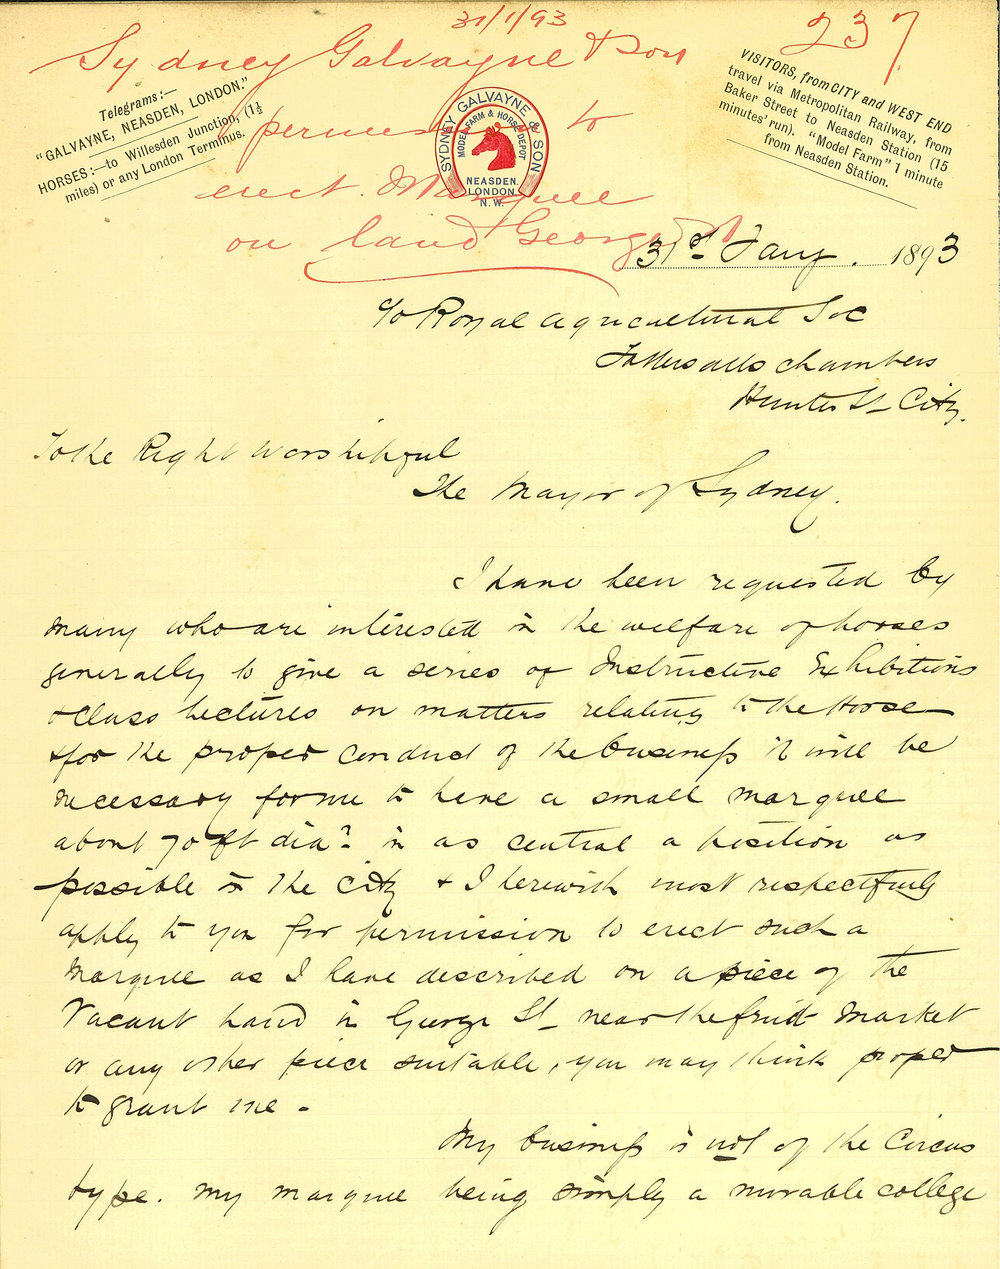 31/1/93
237
Sydney Galvayne & Son
permission to
erect Marquee
on land George St
Telegrams:—
"GALVAYNE, NEASDEN, LONDON."
HORSES:—to Willesden Junction, (1½
miles) or any London Terminus.
SYDNEY GALVAYNE & SON
MODEL FARM & HORSE DEPOT
NEASDEN.
LONDON.
N.W.
VISITORS, from CITY and WEST END
travel via Metropolitan Railway, from
Baker Street to Neasden Station (15
minutes' run). "Model Farm" 1 minute
from Neasden Station.
31st Jany. 1893
c/o Royal Agricultural Soc
Tattersalls Chambers
Hunter St City.
To the Right Worshipful
The Mayor of Sydney.
I have been requested by
many who are interested in the welfare of horses
generally to give a series of Instructive Exhibitions
& Class Lectures on matters relating to the Horse
& for the proper conduct of the business it will be
necessary for me to have a small marquee
about 70 ft diar in as central a position as
possible in the city & I herewith most respectfully
apply to you for permission to erect such a
Marquee as I have described on a piece of the
Vacant land in George St near the fruit Market
or any other piece suitable, you may think proper
to grant me -
My business is not of the Circus
type. my marquee being simply a movable college